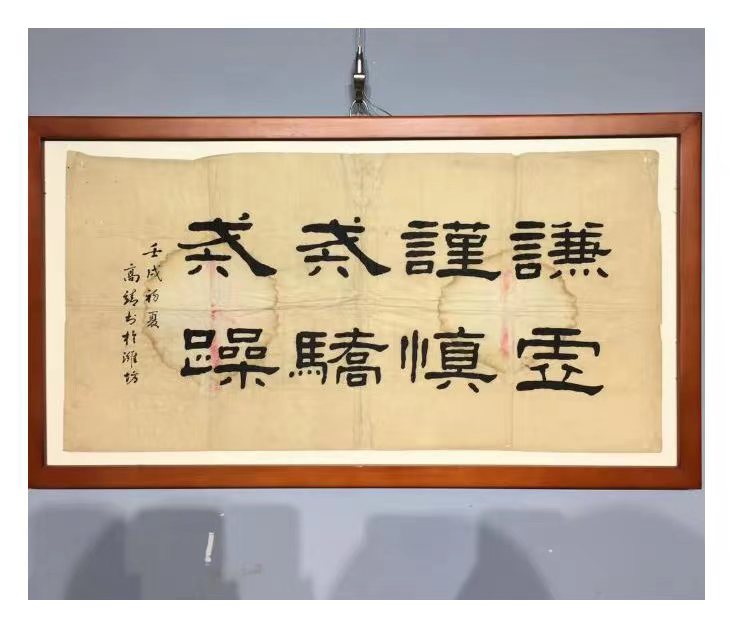 謙虛
謹慎
戒驕
戒躁
壬戌初夏
高书於濰坊